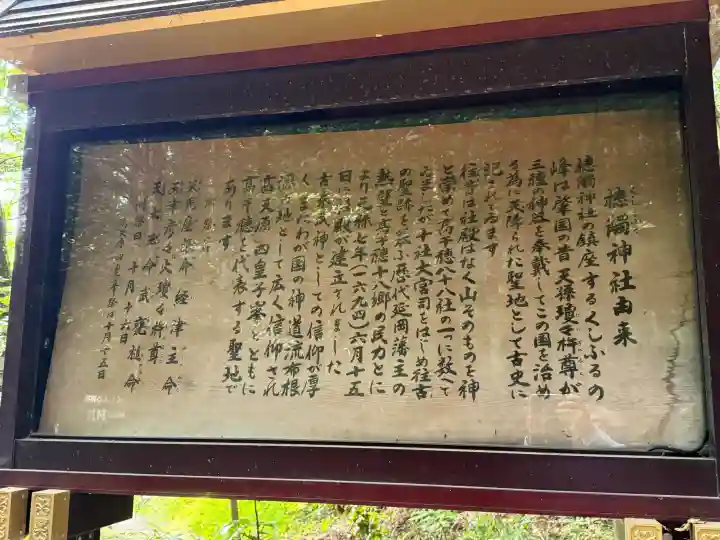 槵觸神社由来
槵觸神社の鎮座するくしふるの
峰は肇国の昔天孫瓊々杵尊が
三種の神器を奉戴してこの国を治め
る為に天降られた聖地として古史に
記されております
往昔は社殿はなく山そのものを神
と崇めて高千穂八十八社の一つに数へて
の聖跡を
熱望と高千穂十八郷の民力とに
より元禄七年(一六九四)六月十五
日に社殿が建立されました
古来武神としての信仰が厚
くまたわが国の神道流布根
源の地として広く信仰され
高天原 四皇子峯とともに
高千穂を代表する聖地で
あります
天児屋根命 経津主命
天津彦々火瓊々杵尊
天太玉命 武甕槌命
例祭日 十月十六日